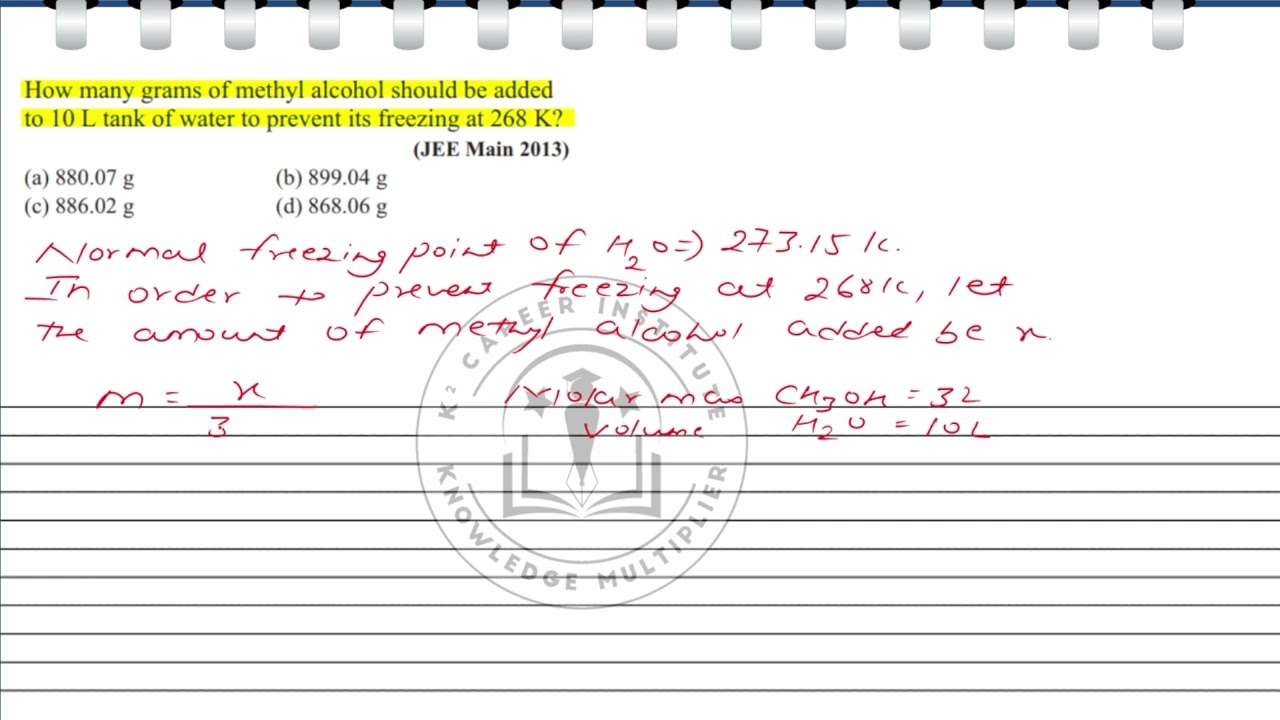 How many grams of methyl alcohol should be added
to 10 L tank of water to prevent its freezing at 268 K?
(JEE Main 2013)
(a) 880.07 g (b) 899.04 g
(c) 886.02 g (d) 868.06 g
Normal freezing point of H2O => 273.15 K.
In order to prevent freezing at 268 K, let
the amount of methyl alcohol added be x.
m = x / 3
Molar mass CH3OH = 32
Volume H2O = 10L
K² CAREER INSTITUTE
KNOWLEDGE MULTIPLIER